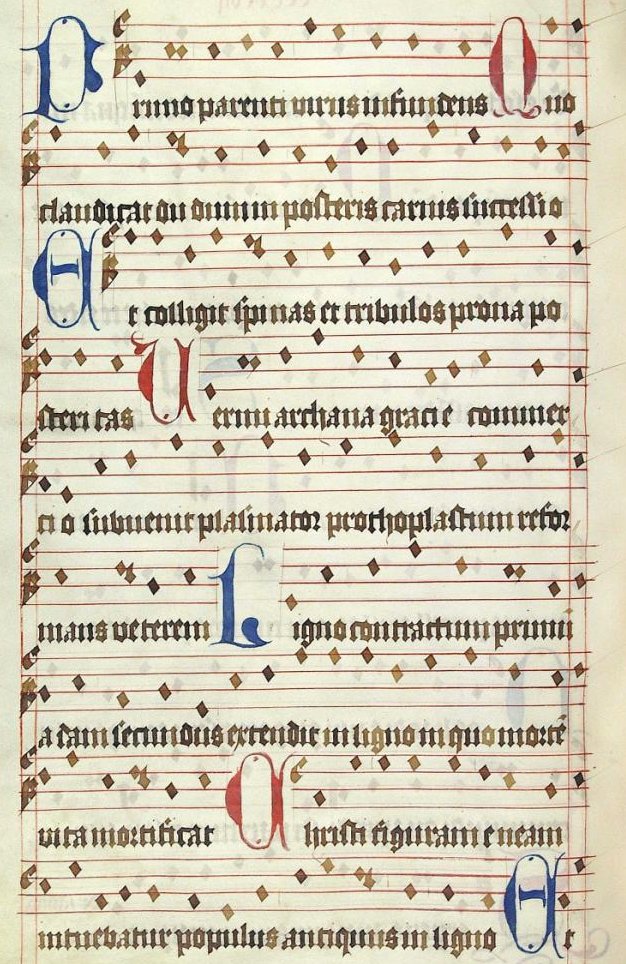 Primo parenti virus infundens Quo
claudicat du dum in posteris carnis successio
Et colligit spinas et tribulos prona po
steritas Verum archana gracie commer
ci o subvenit plasmator prothoplastum refor
mans veterem Ligno contractum primi
adam secundus extendit in ligno in quo mortē
vita mortificat Christi figuram eneam
intuebatur populus antiquus in ligno Et